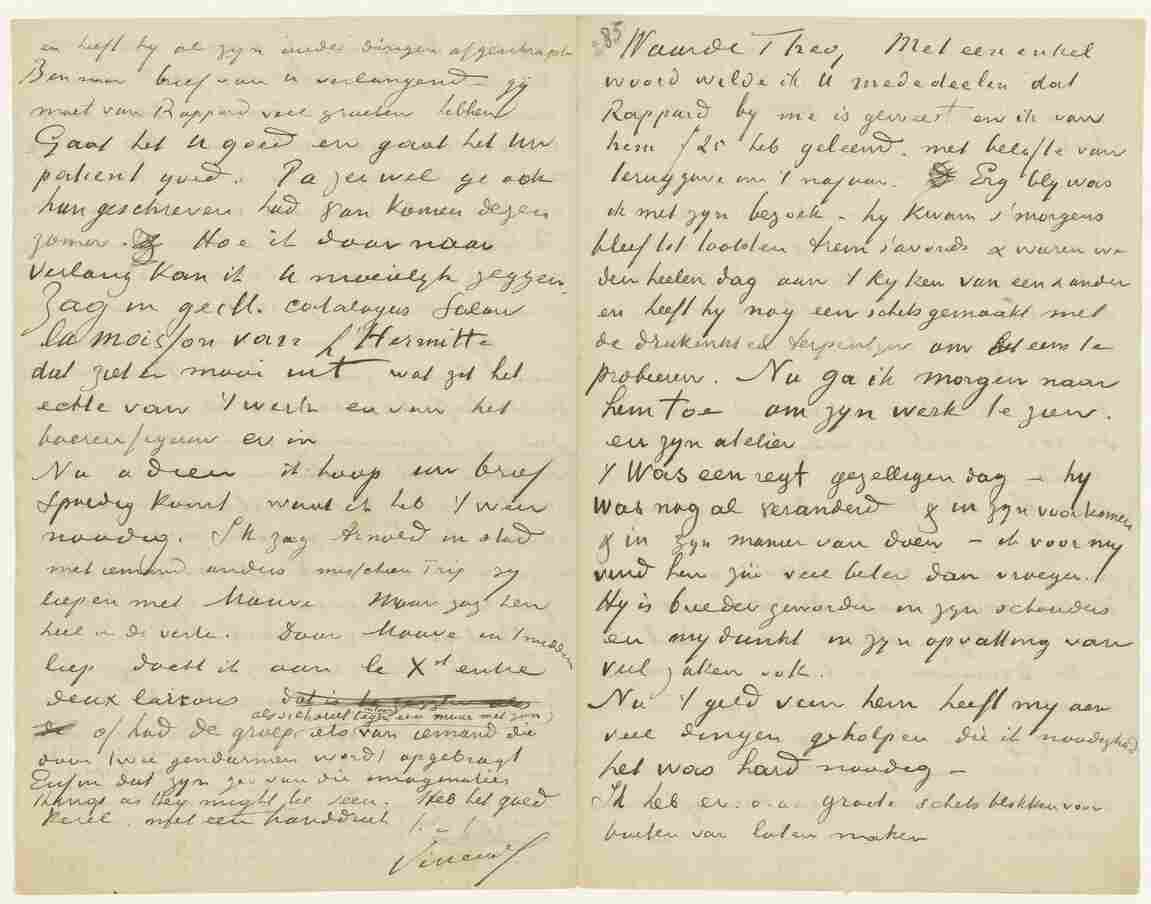 en heeft hy al zyn ouder dingen afgeschrapt.
Ben naar brief van u verlangend – gy
moet van Rappard veel groeten hebben
Gaat het U goed en gaat het uw
patient goed. Pa zei wel ge ook
hun geschreven had van komen dezen
zomer. Hoe ik daar naar
verlang kan ik U moeielyk zeggen.
Zag in geill. catalogus Salon
la moisson van l'Hermitte
dat ziet er mooi uit wat zit het
echte van 't werk en van het
boerenfiguur er in
Nu adieu ik hoop uw brief
spoedig komt want ik heb 't weer
noodig. Ik zag Arnold in stad
met iemand anders misschien Trip zy
liepen met Mauve. Maar zag hen
heel in de verte. Daar Mauve in 't midden
liep dacht ik aan le Xst entre
deux larrons
als silhouet tegen een muur met zon
of had de groep iets van iemand die
door twee gendarmen wordt opgebragt
Enfin dat zyn zoo van die imaginaties
things as they might be seen. Heb het goed
kerel met een handdruk t. à t.
Vincent
385
Waarde Theo, Met een enkel
woord wilde ik U mededeelen dat
Rappard by me is geweest en ik van
hem f 25 heb geleend. met belofte van
teruggave in 't najaar. Erg bly was
ik met zyn bezoek – hy kwam s'morgens
bleef tot laatsten trein s'avonds & waren we
den heelen dag aan 't kyken van een & ander
en heeft hy nog een schets gemaakt met
de drukinkt en terpentyn om het eens te
probeeren. Nu ga ik morgen naar
hem toe om zyn werk te zien.
en zyn atelier
't Was een regt gezelligen dag – hy
was nog al veranderd & in zyn voorkomen
& in zyn manier van doen – ik voor my
vind hem zóó veel beter dan vroeger.
Hy is breeder geworden in zyn schouders
en my dunkt in zyn opvatting van
veel zaken ook.
Nu 't geld van hem heeft my aan
veel dingen geholpen die ik noodig had
het was hard noodig –
Ik heb er o.a. groote schetsblokken voor
buiten van laten maken